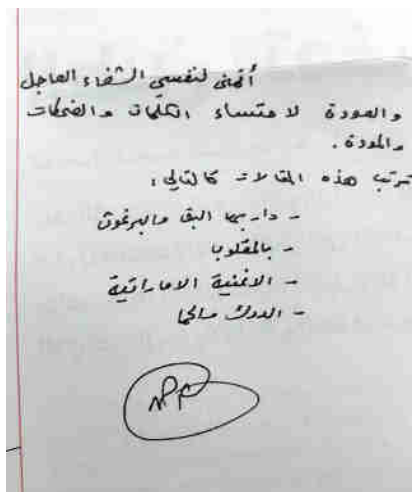 أتمنى لنفسي الشفاء العاجل
والعودة لاحتساء الكلمات والضحكات
والمودة.
ترتب هذه المقالات كالتالي:
- دار بها البق والبرغوث
- بالمقلوب
- الاغنية الاماراتية
- الدوك مالحا